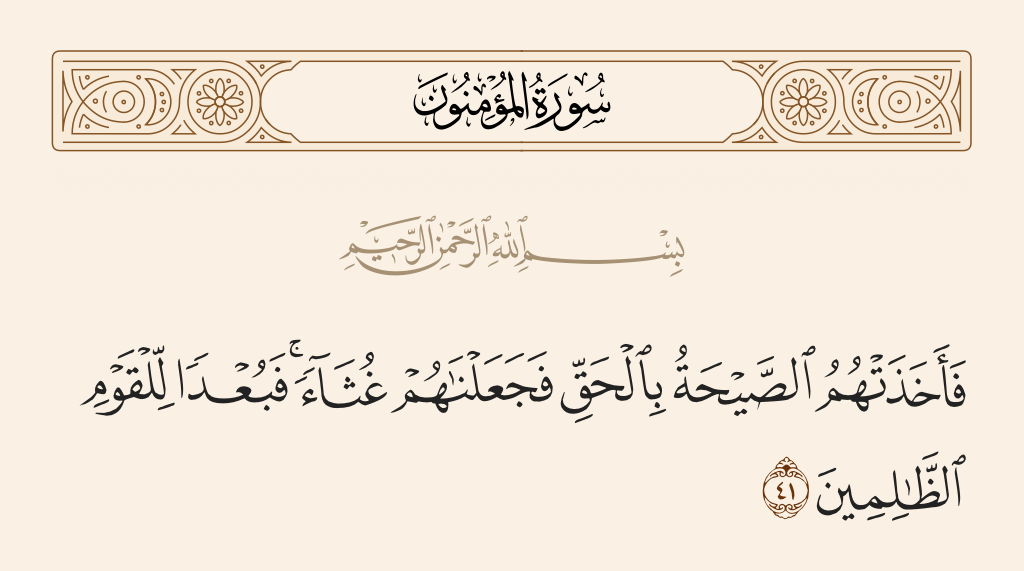 سُورَةُ الْمُؤْمِنُونَ
بِسْمِ ٱللَّهِ ٱلرَّحْمَٰنِ ٱلرَّحِيمِ
فَأَخَذَتْهُمُ ٱلصَّيْحَةُ بِٱلْحَقِّ فَجَعَلْنَٰهُمْ غُثَآءً ۚ فَبُعْدًا لِّلْقَوْمِ
ٱلظَّٰلِمِينَ ٤١